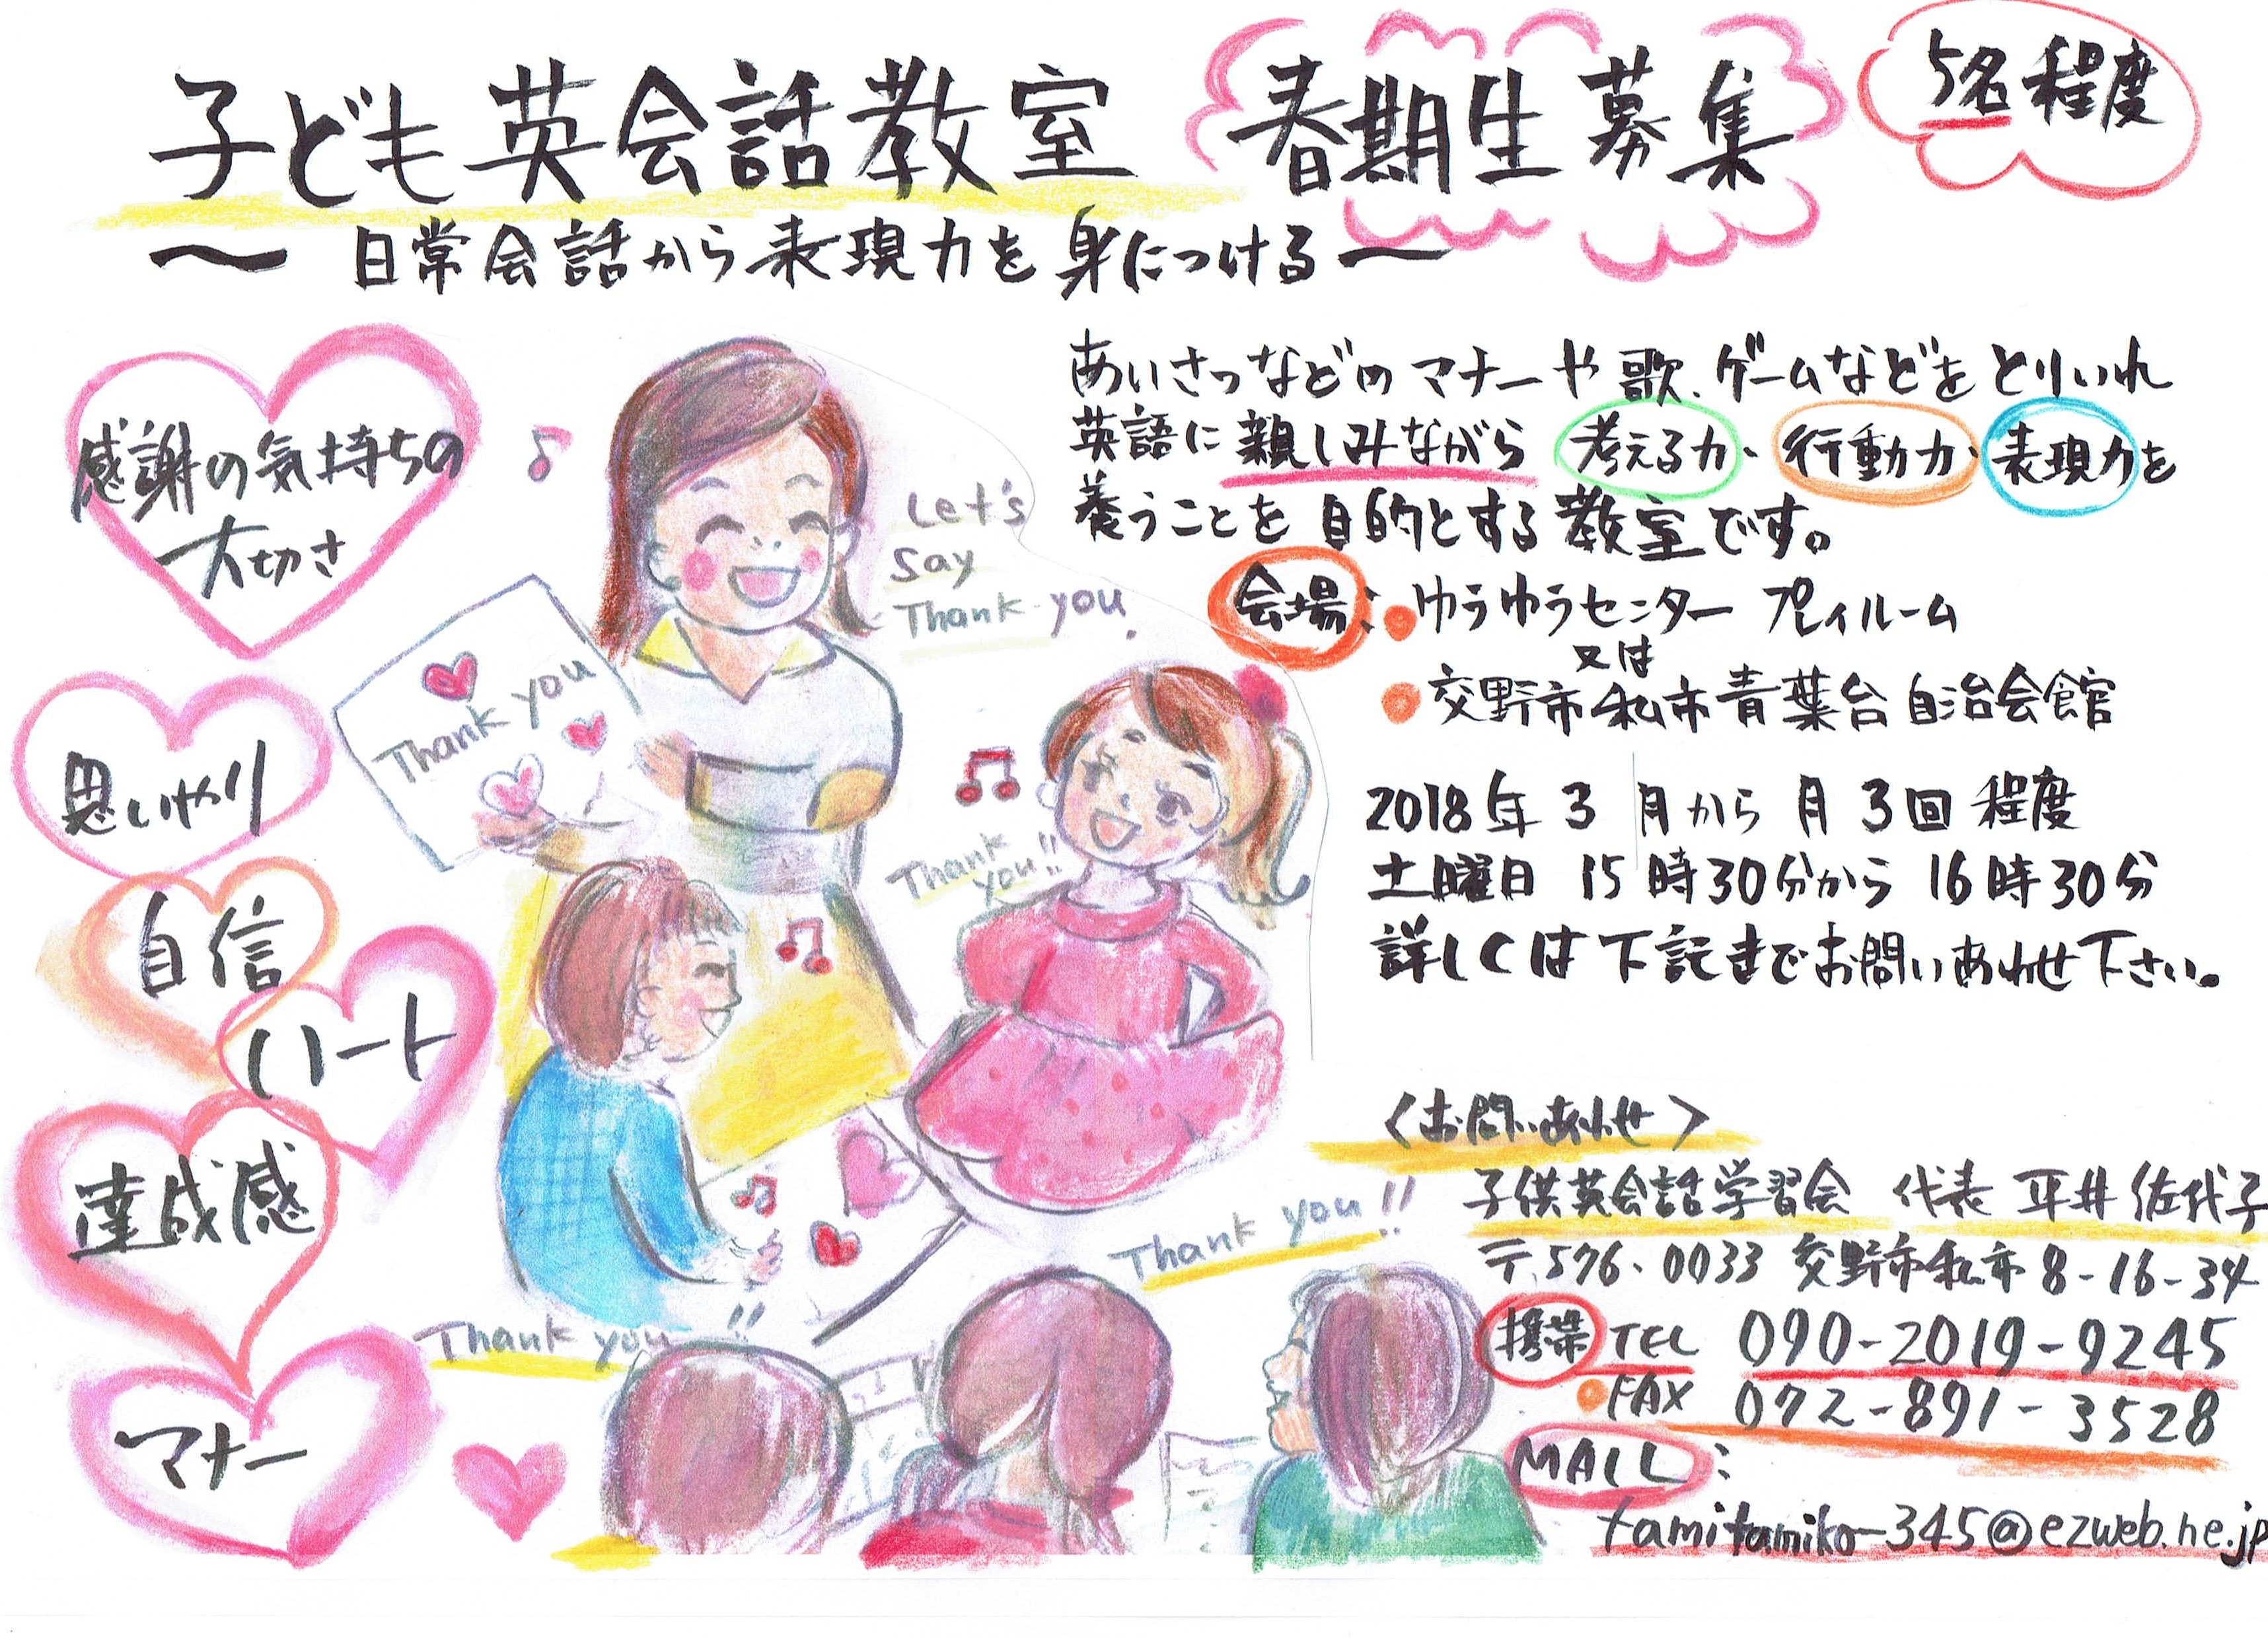 子ども英会話教室 春期生募集 5名程度
〜 日常会話から表現力を身につける 〜
あいさつなどのマナーや歌、ゲームなどをとりいれ
英語に親しみながら 考える力、行動力、表現力を
養うことを目的とする教室です。
会場: ゆうゆうセンター プレイルーム
又は
交野市私市青葉台自治会館
2018年3月から月3回程度
土曜日 15時30分から16時30分
詳しくは下記までお問いあわせ下さい。
感謝の気持ちの
大切さ
思いやり
自信
ハート
達成感
マナー
Let's
Say
Thank you.
Thank you
Thank
you!!
Thank you!!
Thank you!!
〈お問いあわせ〉
子供英会話学習会 代表 平井佐代子
〒576-0033 交野市私市8-16-34
携帯 TEL 090-2019-9245
FAX 072-891-3528
MAIL:
tamitamiko-345@ezweb.ne.jp